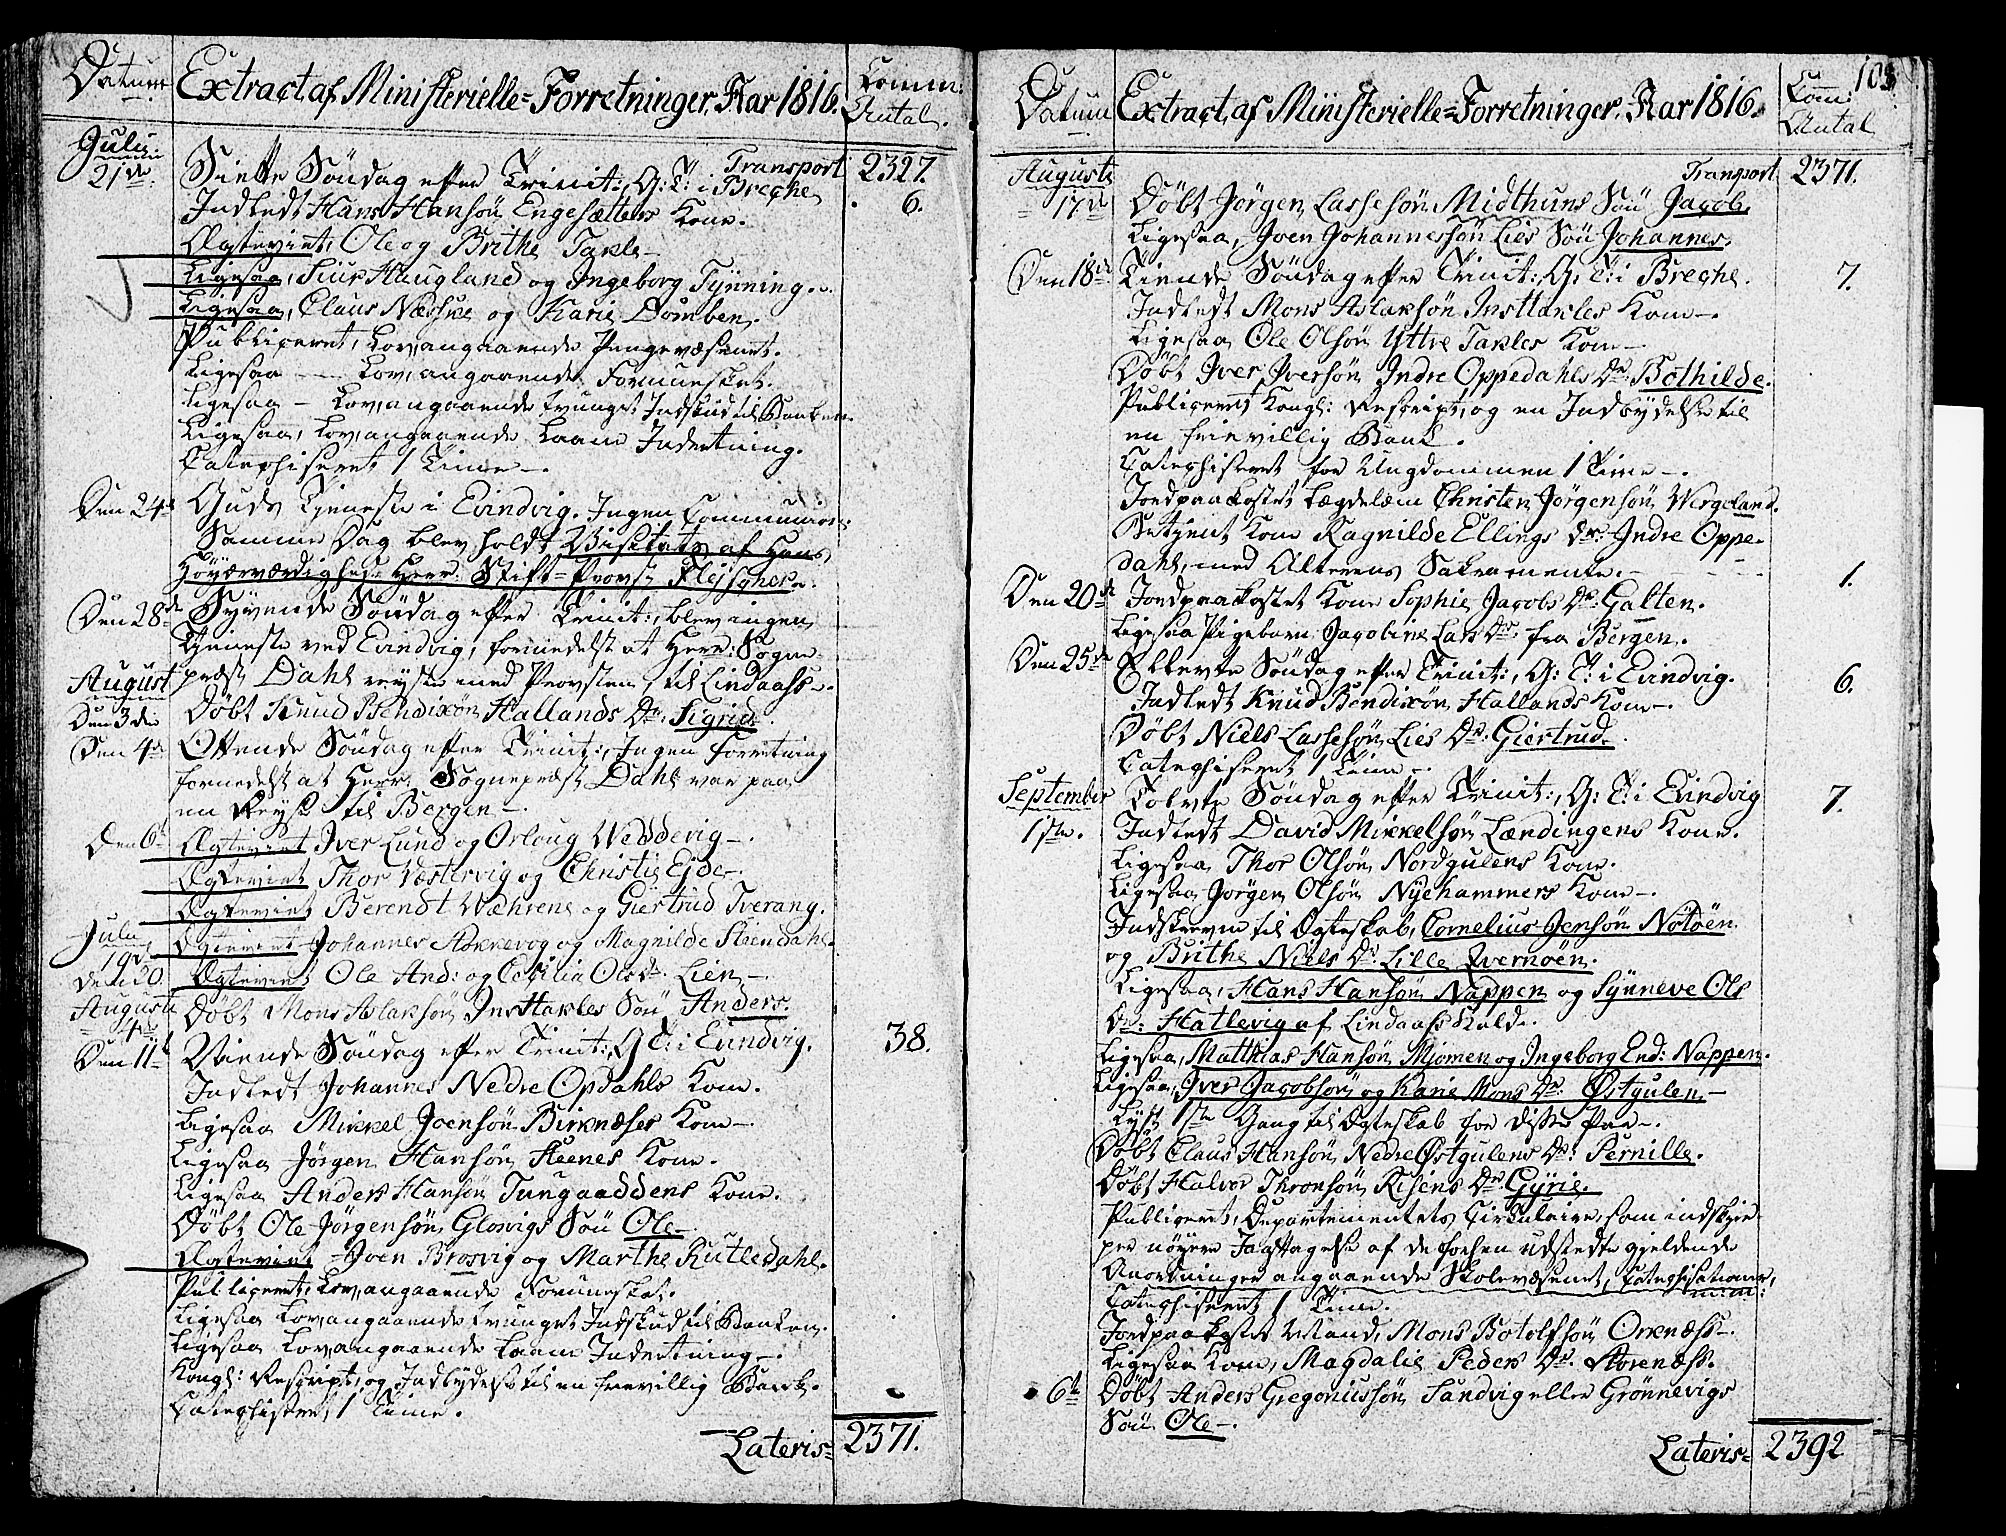 Datum
Extract af Ministerielle=Forretninger. Aar 1816.
Comm:
Antal.
Julii
21de
Siette Søndag efter Trinit:, G: T: i Breche
Transport
2327.
Indledt Hans Hansøn Engesætters Kone.
6.
Ægteviet, Ole og Brithe Takle
Ligesaa, Siur Haugland og Ingeborg Tynning.
Ligesaa, Claus Næssøe og Karie Domben.
Publiceret, Lov, angaaende Pengevæsenet.
Ligesaa — Lov, angaaende Formueskat.
Ligesaa — Lov, angaaende tvunget Indskud til Banken.
Ligesaa, Lov, angaaende Laane Indretning.
Catechiseret 1 Time —.
Den 24de
Guds Tjeneste i Evindvig. Ingen Communion.
Samme Dag blev holdt Visitats af Hans
Høyærværdighed Herr Stift=Provst Flejscher.
Den 28de
Syvende Søndag efter Trinit:, blev ingen
Tjeneste ved Evindvig, formedelst at Herr Sogne
August
præst Dahl reyste med Provsten til Lindaass.
Den 3die
Døbt Knud Bendixøn Hallands Dr. Sigrid
Den 4de
Ottende Søndag efter Trinit:, Ingen Forretning
formedelst at Herr Sognepræst Dahl var paa
en Reyse til Bergen —.
Den 6te
Ægteviet Iver Lund og Orloug Wedderig —.
Ægteviet Thor Væstervig og Christie Ejde —.
Ægteviet Berendt Wæhrens og Giertrud Tverang.
Julii
19de
Ægteviet Johannes Aknevog og Magnilde Steendahl
Den 20
Ægteviet Ole And: og Cecilia Ols Dr. Lien —
Augusti
4de
Døbt Mons Aslaksøn InstTakles Søn Anders.
Den 11te
Niende Søndag efter Trinit:, G: T: i Evindvig.
38.
Indledt Johannes Nedre Opdahls Kone.
Ligesaa Mikkel Joensøn Birknæses Kone —.
Ligesaa Jørgen Hansøn Steenes Kone.
Ligesaa Anders Hansøn Tungaaddens Kone.
Døbt Ole Jørgensøn Glosvigs Søn Ole —
Ægteviet Joen Brosvig og Marthe Kutledahl.
Publiceret, Lov, angaaende Formueskat.
Ligesaa Lov, angaaende tvunget Indskud til Banken.
Ligesaa Lov angaaende Laane Indretning —.
Kongl: Rescript, og Indbydelse til en frievillig Bank.
Catechiseret 1 Time.
Lateris=
2371.
103
Datum
Extract, af Ministerielle=Forretninger. Aar 1816.
Com:
Antal
Augusti
Transport
2371.
17de
Døbt Jørgen Lassesøn Midthuns Søn Jacob.
Ligesaa, Joen Johannessøn Lies Søn Johannes.
Den 18de
Tiende Søndag efter Trinit:, G: T: i Breche.
7.
Indledt Mons Aslaksøn InstTakles Kone —.
Ligesaa Ole Olsøn Yttre Takles Kone —
Døbt Iver Iversøn Indre Oppedahls Dr. Bothilde.
Publiceret Kongl: Rescript, og en Indbydelse til
en frievillig Bank.
Catechiseret for Ungdommen 1 Time —.
Jordpaakastet Lægdelem Christen Jørgensøn Wergeland.
Betjent Kone Ragnilde Ellings Dr: Indre Oppe-
dahl, med Alterens Sakramente. —
1.
Den 20de
Jordpaakastet Kone Sophie Jacobs Dr. Galten.
Ligesaa Pigebarn Jacobine Lars Dr. fra Bergen.
Den 25de
Ellevte Søndag efter Trinit:, G: T: i Evindvig.
6.
Indledt Knud Bendixøn Hallands Kone —.
Døbt Niels Lassesøn Lies Dr. Giertrud.
Catechiseret 1 Time —.
September
Tolvte Søndag efter Trinit:, G: T: i Evindvig
7.
1ste.
Indledt David Mikkelsøn Lændingens Kone.
Ligesaa Thor Olsøn Nordgulens Kone.
Ligesaa Jørgen Olsøn Nyehammers Kone —.
Indskrevne til Ægteskab, Cornelius Jensøn Nøtøen
og Brithe Niels Dr. Lille Qvernøen.
Ligesaa, Hans Hansøn Nappen og Synneve Ols
Dr: Hatlevig af Lindaass Kald.
Ligesaa, Matthias Hansøn Miømen og Ingeborg End: Nappen.
Ligesaa, Iver Jacobsøn og Karie Mons Dr: Østgulen —
Lyst 1ste Gang til Ægteskab for disse Par —.
Døbt Claus Hansøn Nedre Østgulens Dr: Pernille.
Døbt Halvor Thronsøn Risens Dr Gyrie.
Publiceret, Departementets Circulaire, som indskjær-
per nøyere Iagttagelse af de forhen udstedte gjeldende
Anordninger angaaende Skolevæsenet, Catechisationer,
m: m:
Catechiseret 1 Time.
Jordpaakastet Mand, Mons Botolfsøn Orknæss —.
Ligesaa Kone, Magdalie Peders Dr. Storenæss.
6te
Døbt Anders Gregoriussøn Sandvig eller Grønnevigs
Søn Ole —.
Lateris=
2392